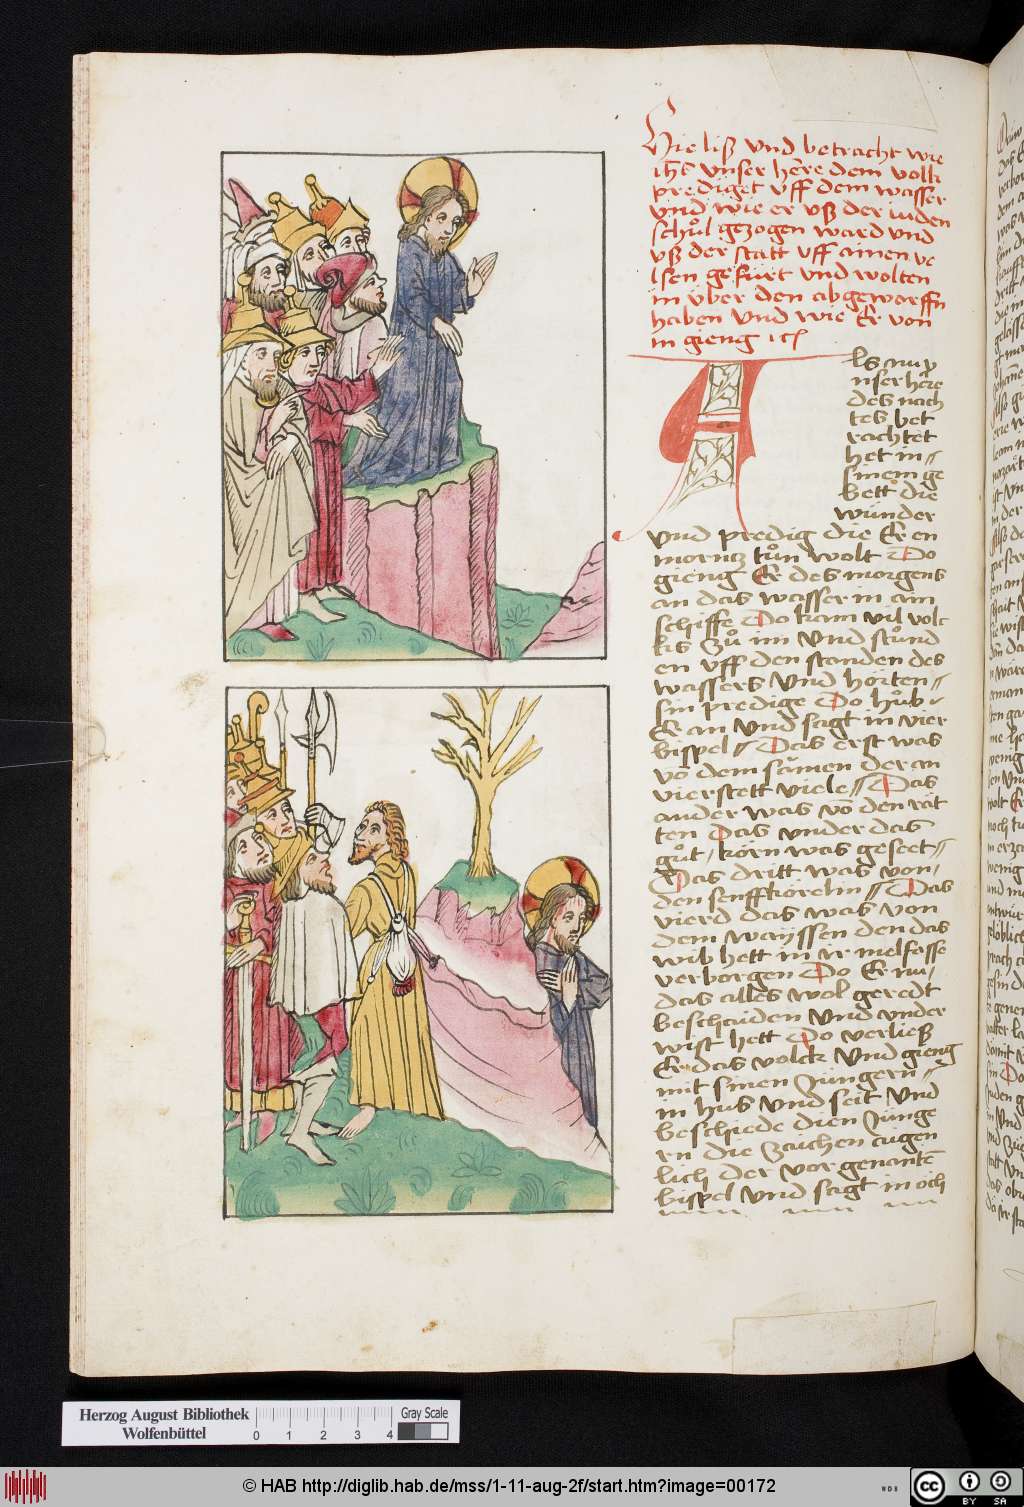 Hie liß vnd betracht wie
ih̄s vnser he̅re dem volk
prediget vff dem wasser
vnd wie er vß der iuden
schuͦl gezogen ward vnd
vß der statt vff ainen ve
lsen gefürt vnd wolten
in vber den abgeworffn̄
haben vnd wie Er von
in gieng
Als nun
vnser he̅re
des nach
tes bet
rachtet
het in
sinem ge
bett die
wunder
vnd predig die Er en
morntz tuͦn wolt Do
gieng Er des morgens
an das wasser in ain
schiffe Do kam vil volc
kes zuͦ im vnd stuͦnd
en vff den standen des
wassers vnd horten
sin predige Do huͦb
Er an vnd sagt in vier
bispel Das erst was
vō dem sāmen der an
vier stett viele Das
ander was vō den rat
ten Das vnder das
guͦt korn was geseet
Das dritt was von
den senffkörelin Das
vierd das was von
dem wayssen den das
wib hett in ir melfasse
verborgen Do Er nu
das alles wol geredt
beschaiden vnd vnder
wist hett Do verließ
Er das volck vnd gieng
mit sinen Jungern
in hus vnd seit vnd
beschiede dien Junge
rn die zaichen augen
lich der vor genantē
bispel vnd sagt in och
Herzog August Bibliothek
Wolfenbüttel
0 1 2 3 4
Gray Scale
© HAB http://diglib.hab.de/mss/1-11-aug-2f/start.htm?image=00172
cc BY SA